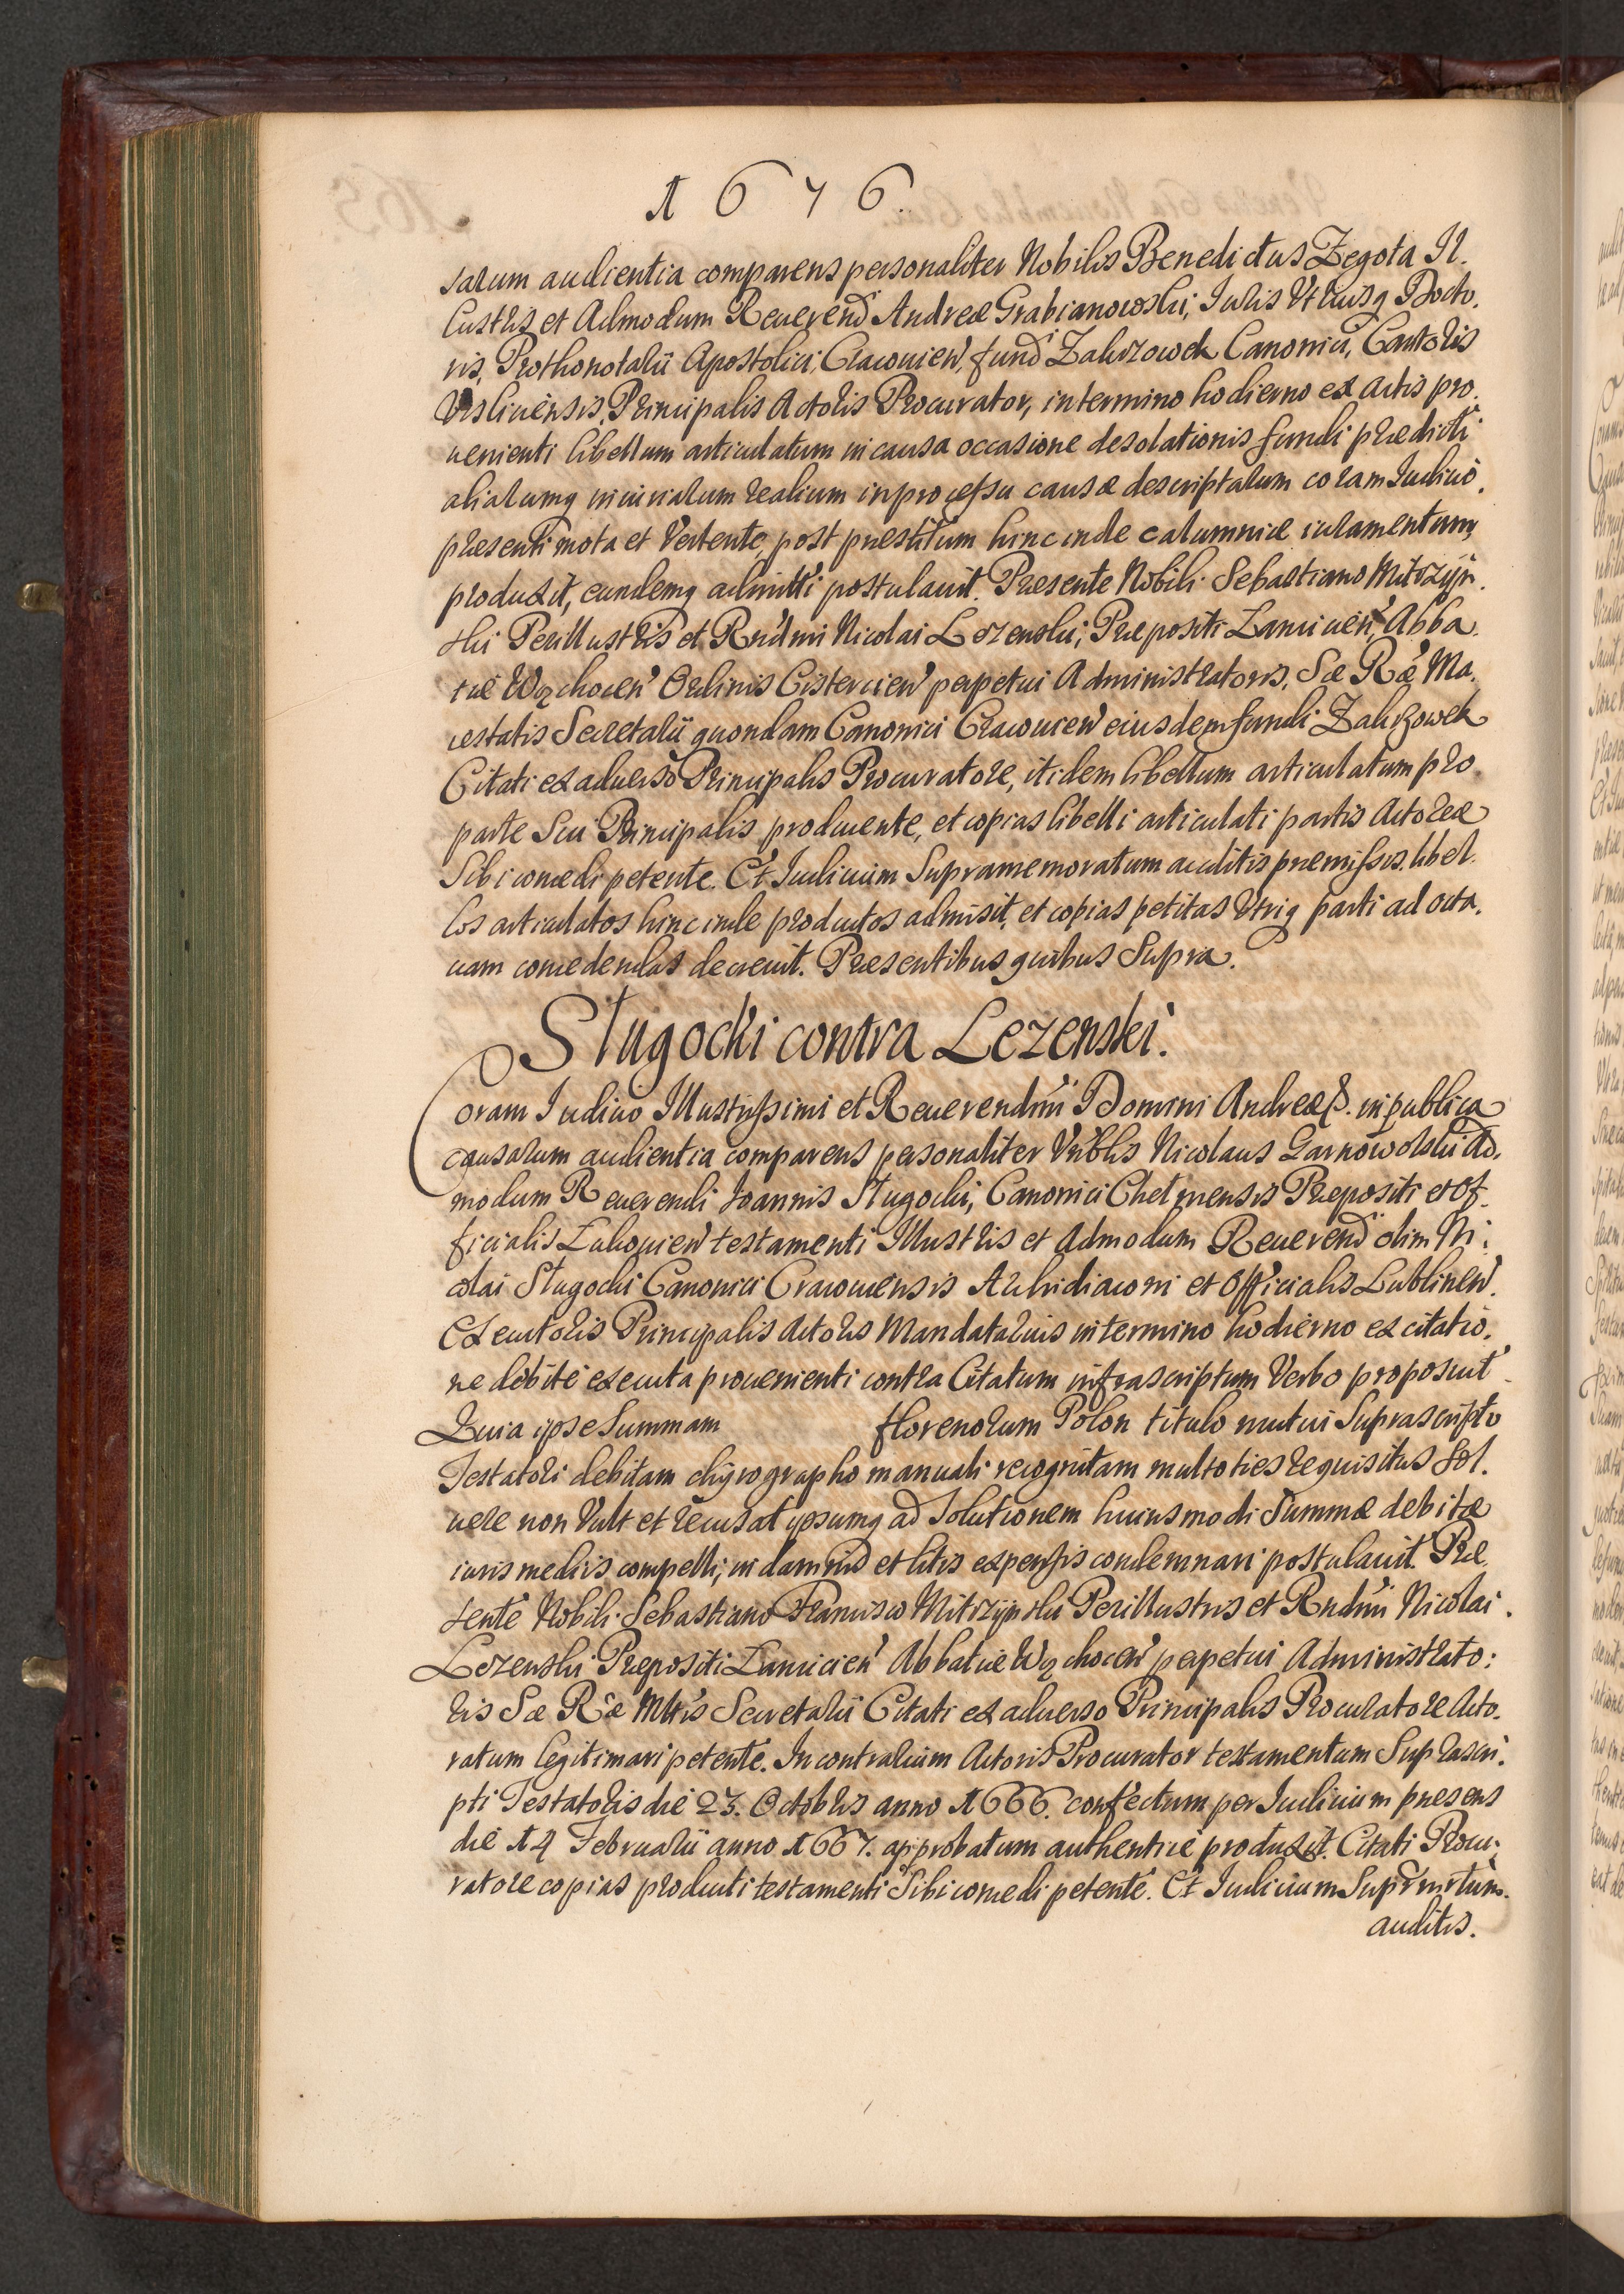 1676.
sarum audientia comparens personaliter Nobilis Benedictus Zegota Il.
lustris et Admodum Reuerend Andreæ Grabianowski, Iuris Vtriusq Docto.
ris, Prothonotarii Apostolici, Cracouien, fund Zakrzowek Canonici, Cantoris
Visliciensis, Principalis Actoris Procurator, in termino hodierno ex actis pro.
uenienti libellum articulatum in causa occasione desolationis fundi prædicti
aliarumq iniuriarum realium in processu causæ descriptarum coram Iudicio.
præsenti mota et Vertente, post præstitum hinc inde calumniæ iuramentum,
produxit, eundemq admitti postulauit. Præsente Nobili Sebastiano Mitrzyn.
ski Perillustris et Rndmi Nicolai Lezenski, Præpositi Lanciuien, Abba.
tiæ Wąchocen Ordinis Cistercien perpetui Administratoris, Sæ Ræ Ma.
iestatis Secretarii quondam Canonici Cracouien eiusdem fundi Zakrzowek
Citati ex aduerso Principalis Procuratore, itidem libellum articulatum pro
parte Sui Principalis producente, et copias libelli articulati partis Actoreæ
Sibi concedi petente. Et Iudicium Supramemoratum auditis præmissis libel.
los articulatos hinc inde productos admisit, et copias petitas Vtriq parti ad octa.
uam concedendas decreuit. Præsentibus quibus Supra.
Sługocki contra Lezenski.
Coram Iudicio Illustrissimi et Reuerendmi Domini Andreæ p. in publica
causarum audientia comparens personaliter Nobilis Nicolaus Garnowolski Ad.
modum Reuerendi Ioannis Sługocki, Canonici Chelmensis Præpositi et Of.
ficialis Lukouien testamenti Illustris et Admodum Reuerend olim Ni.
colai Sługocki Canonici Cracouiensis Archidiaconi et Officialis Lublinen.
Executoris Principalis Actoris Mandatarius in termino hodierno ex citatio.
ne debite executa prouenienti contra Citatum infrascriptum Verbo proposuit
Quia ipse Summam florenorum Polon titulo mutui Suprascripto
Testatori debitam chyrographo manuali recognitam multoties requisitus Sol.
uere non Vult et recusat ipsumq ad Solutionem huiusmodi Summæ debitæ
iuris mediis compelli, in damnis et litis expensis condemnari postulauit. Præ.
sente Nobili Sebastiano Francisco Mitrzynski Perillustris et Rndmi Nicolai.
Lezenski Præpositi Lanciuien Abbatiæ Wąchocen perpetui Administrato:
ris Sæ Ræ Mttis Secretarii Citati ex aduerso Principalis Procuratore Acto.
ratum legitimari petente. In contrarium Actoris Procurator testamentum Suprascri.
pti Testatoris die 23. Octobris anno 1666. confectum per Iudicium præsens
die 14 Februarii anno 1667. approbatum authentice produxit. Citati Procu.
ratore copias producti testamenti Sibi concedi petente. Et Iudicium Suprmrtum.
auditis.